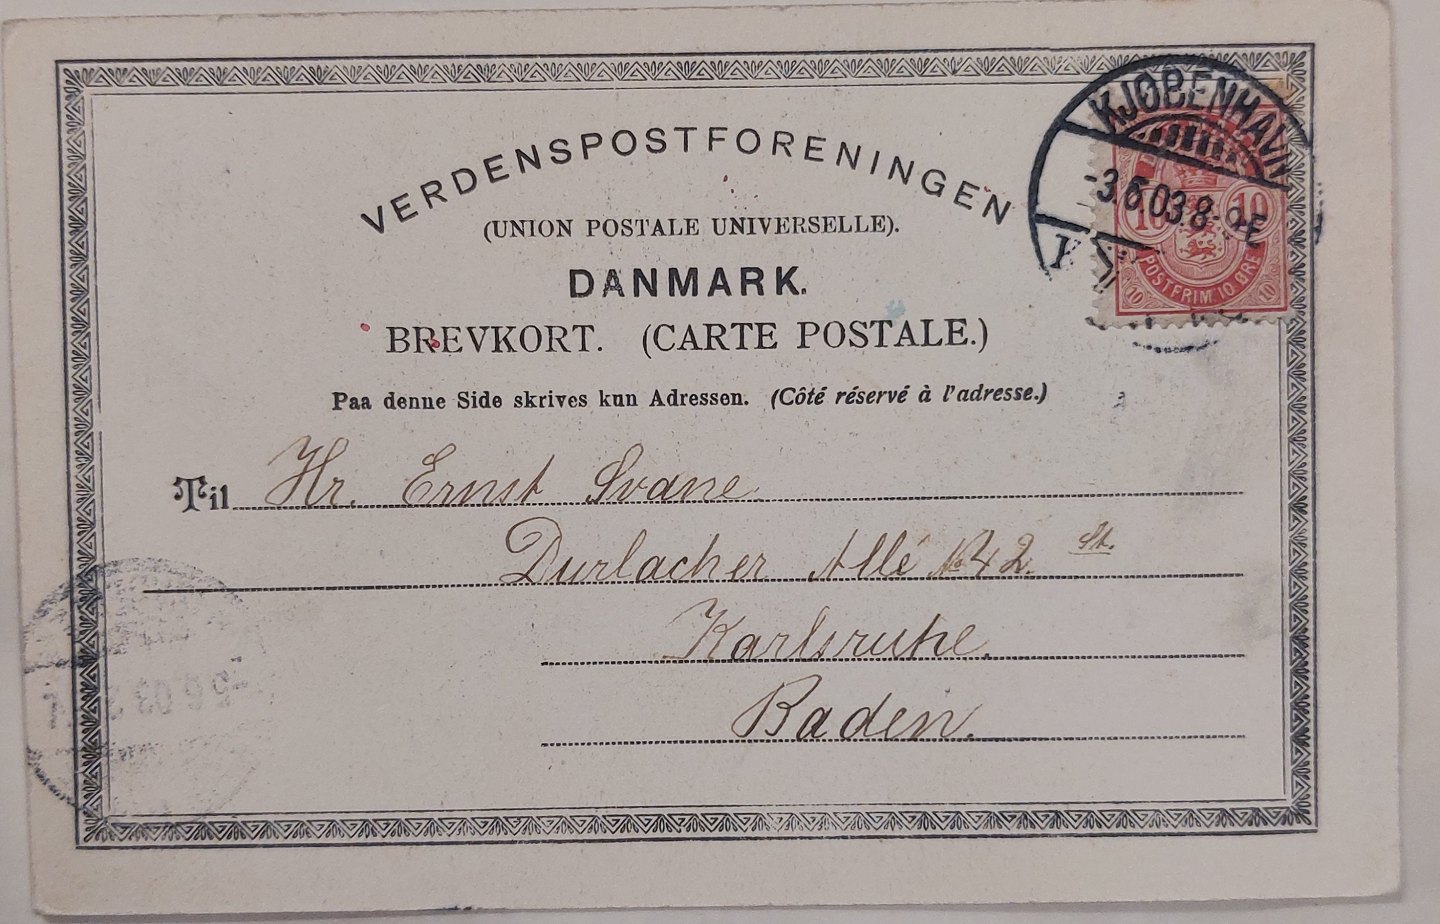 VERDENSPOSTFORENINGEN
(UNION POSTALE UNIVERSELLE).
DANMARK.
BREVKORT. (CARTE POSTALE.)
Paa denne Side skrives kun Adressen. (Côté réservé à l'adresse.)
KJØBENHAVN
-3.6.03 8-9E
K
10 10
POSTFRIM 10 ØRE
10 10
Til Hr. Ernst Svane
Durlacher Allé № 42 St.
Karlsruhe.
Baden.
-5.6.03. 3